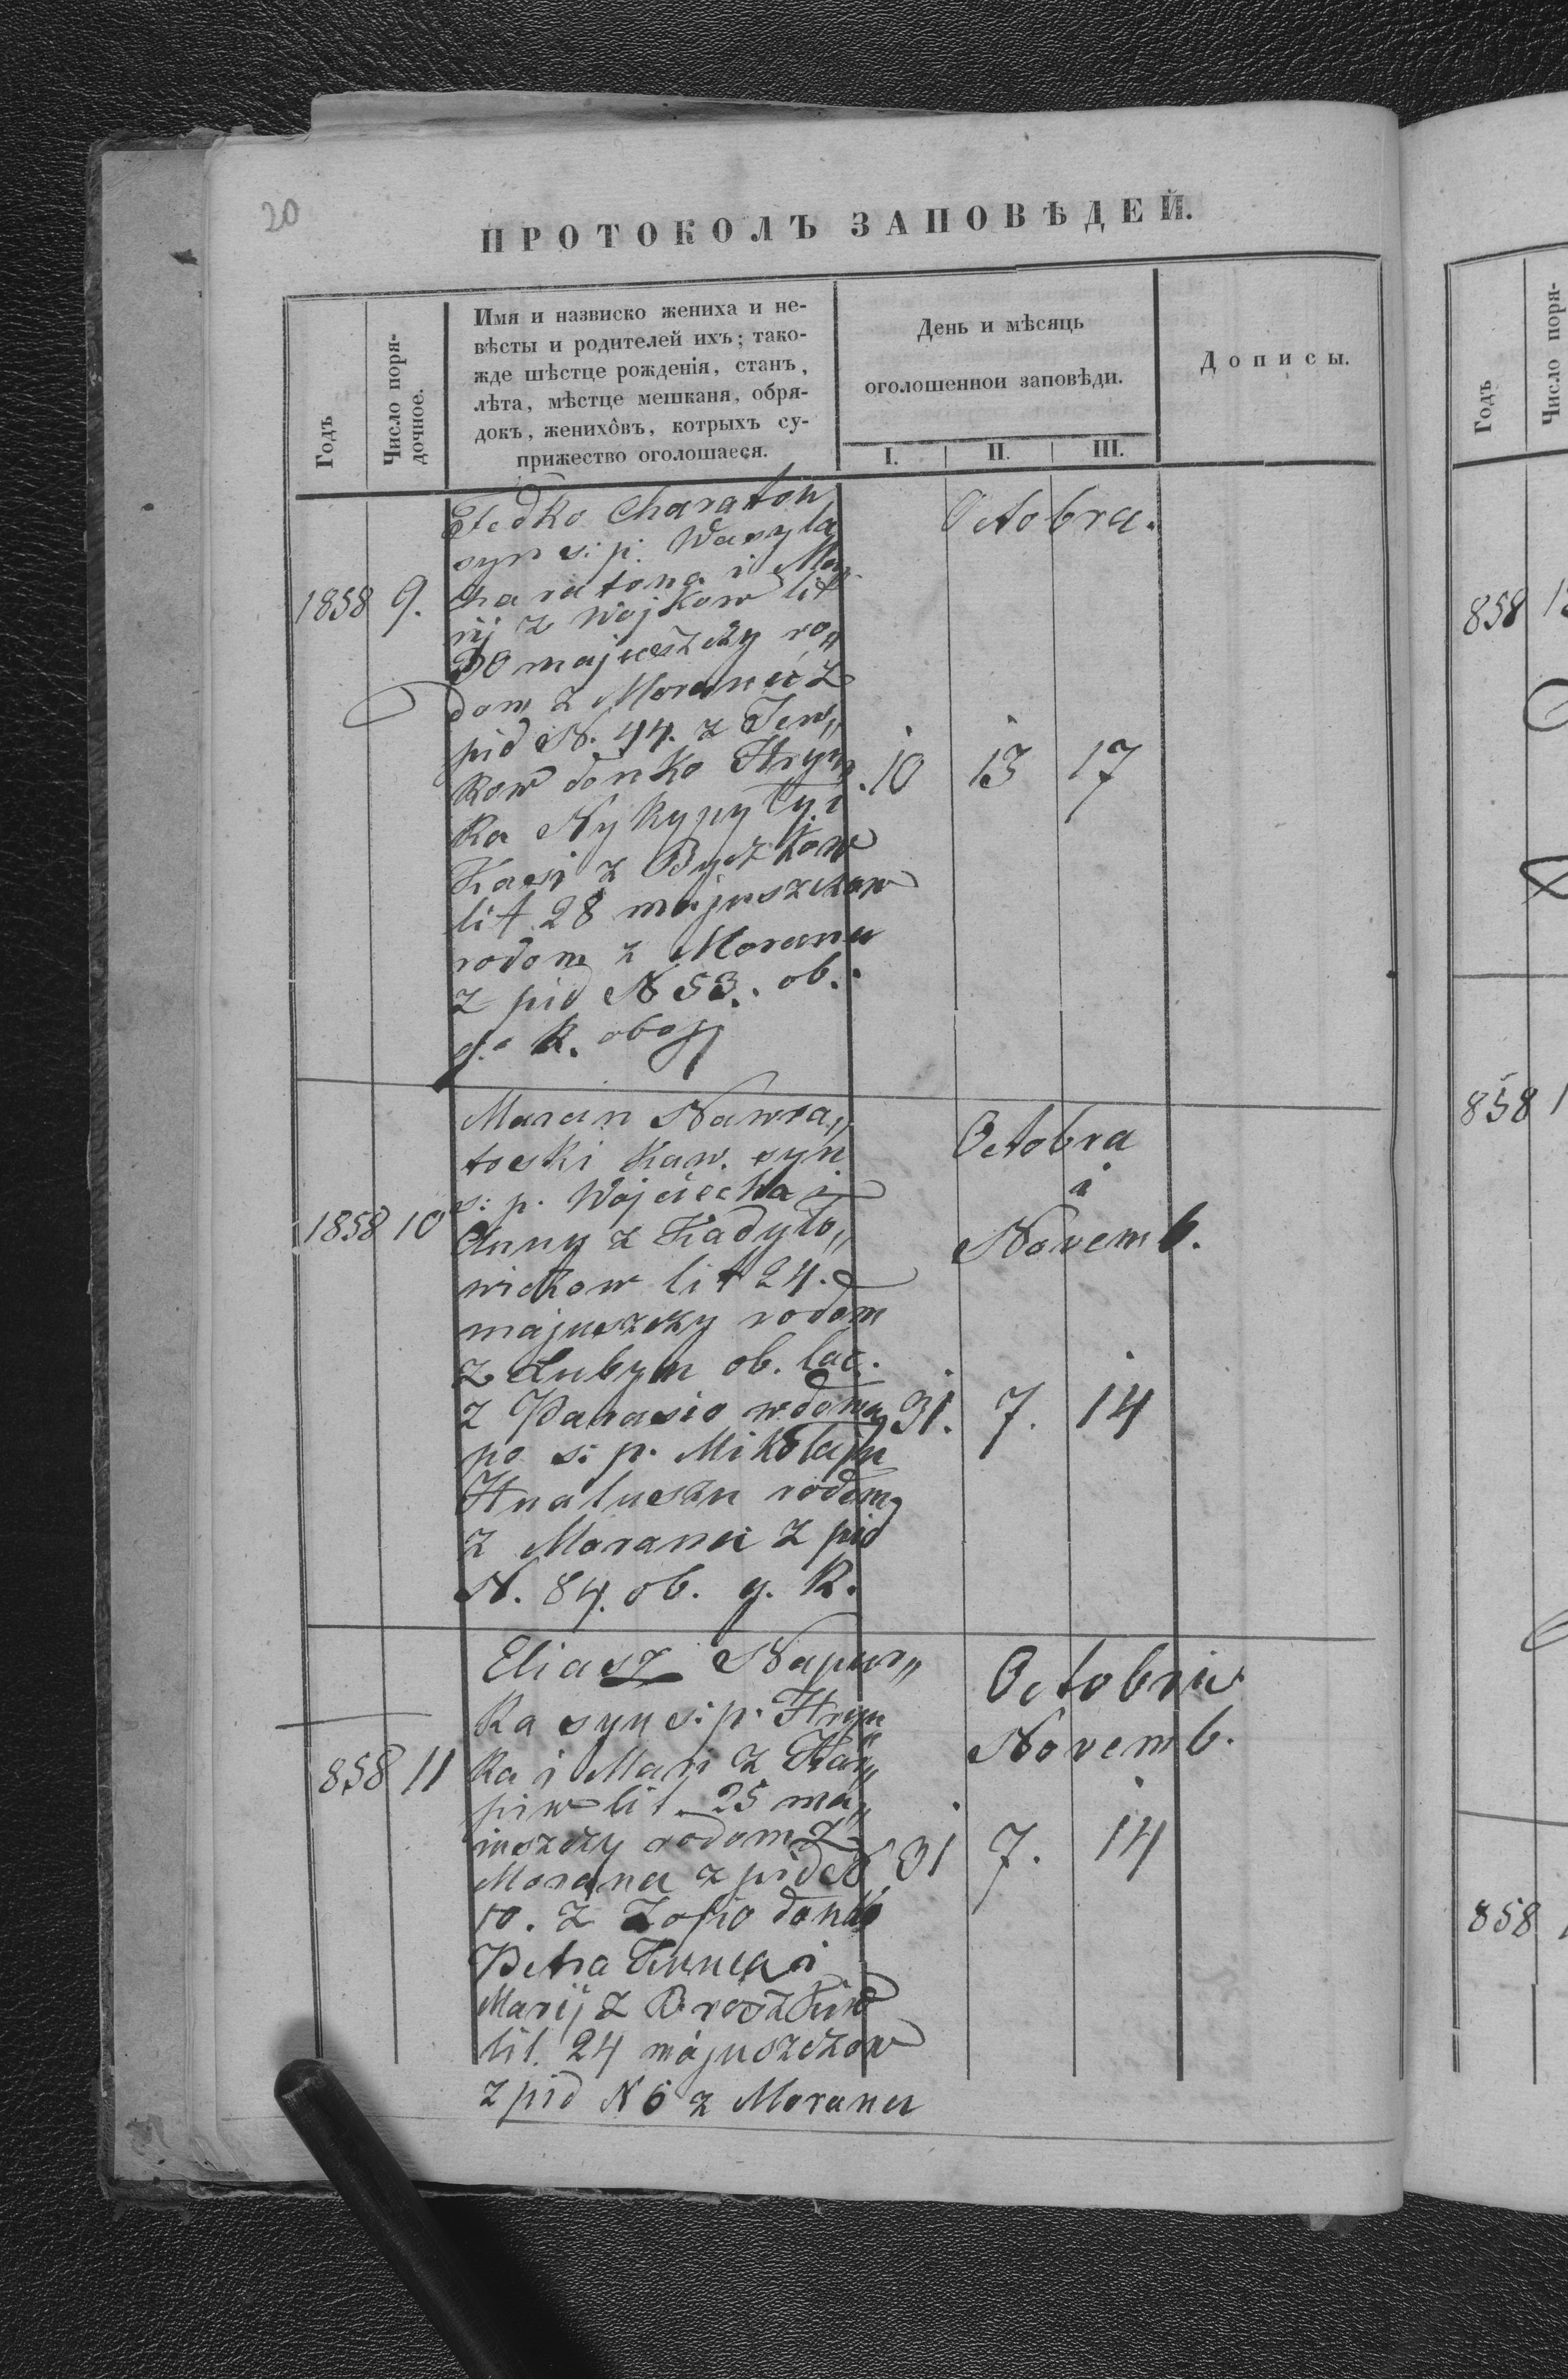 20
ПРОТОКОЛЪ ЗАПОВѢДЕЙ.
Годъ
Число поря-
дочное.
Имя и назвиско жениха и не-
вѣсты и родителей ихъ; тако-
жде шѣстце рожденія, станъ,
лѣта, мѣстце мешканя, обря-
докъ, женихôвъ, котрыхъ су-
прижество оголошаеся.
День и мѣсяць
оголошеннои заповѣди.
I. II. III.
Дописы.
Fedko Charaton
syn s: p. Wasyla
Charatona i Ma„
1858 9.
rij z Wojkow lit
30 majuszczy ro„
dom z Moranec z
pid N. 44. z Jew„
kow donko Hryn„
ka Nykypyły i
Kasi z Byczkow
lit 28 majuszczow
rodom z Moranec
z pid N 53. ob.
g. k. oboj
Octobra.
10 13 17
Marcin Nawra„
toski Kaw. syn
s: p. Wojciecha i
1858 10
Anny z Kadyło„
wiczow lit 24.
majuszczy rodom
z Lubyn ob. łac.
z Parasio wdowo
po s: p. Mikołaju
Hnatuszu rodom
z Moranec z pid
N. 84. ob. g. K.
Octobra
i
Novemb.
31. 7. 14
Eliasz Napur„
ka syn s: p. Hryn
858 11
ka i Mari z Kar„
piw lit. 25 ma„
juszczy rodom z
Moranec z pid N
10. z Zofio donko
Petra i
Marij z
lit. 24 majuszczow
z pid N 6 z Moranec
Octobris
Novemb.
31 7. 14
Годъ
Число поря-
858
858
858